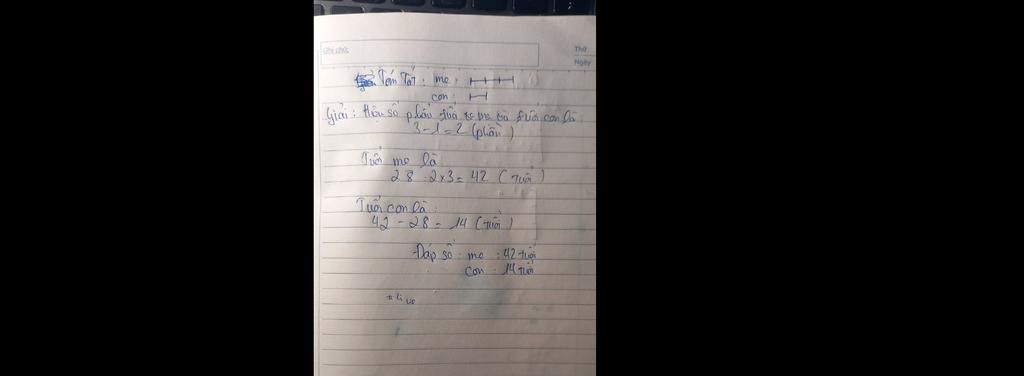 Ghi chú:
Thứ
Ngày
Tóm Tắt: mẹ:
con:
Giải: Hiệu số phần tuổi mẹ và tuổi con là
3-1=2 (phần)
Tuổi mẹ là
28:2x3=42 (tuổi)
Tuổi con là:
42-28=14 (tuổi)
Đáp số: mẹ: 42 tuổi
con: 14 tuổi